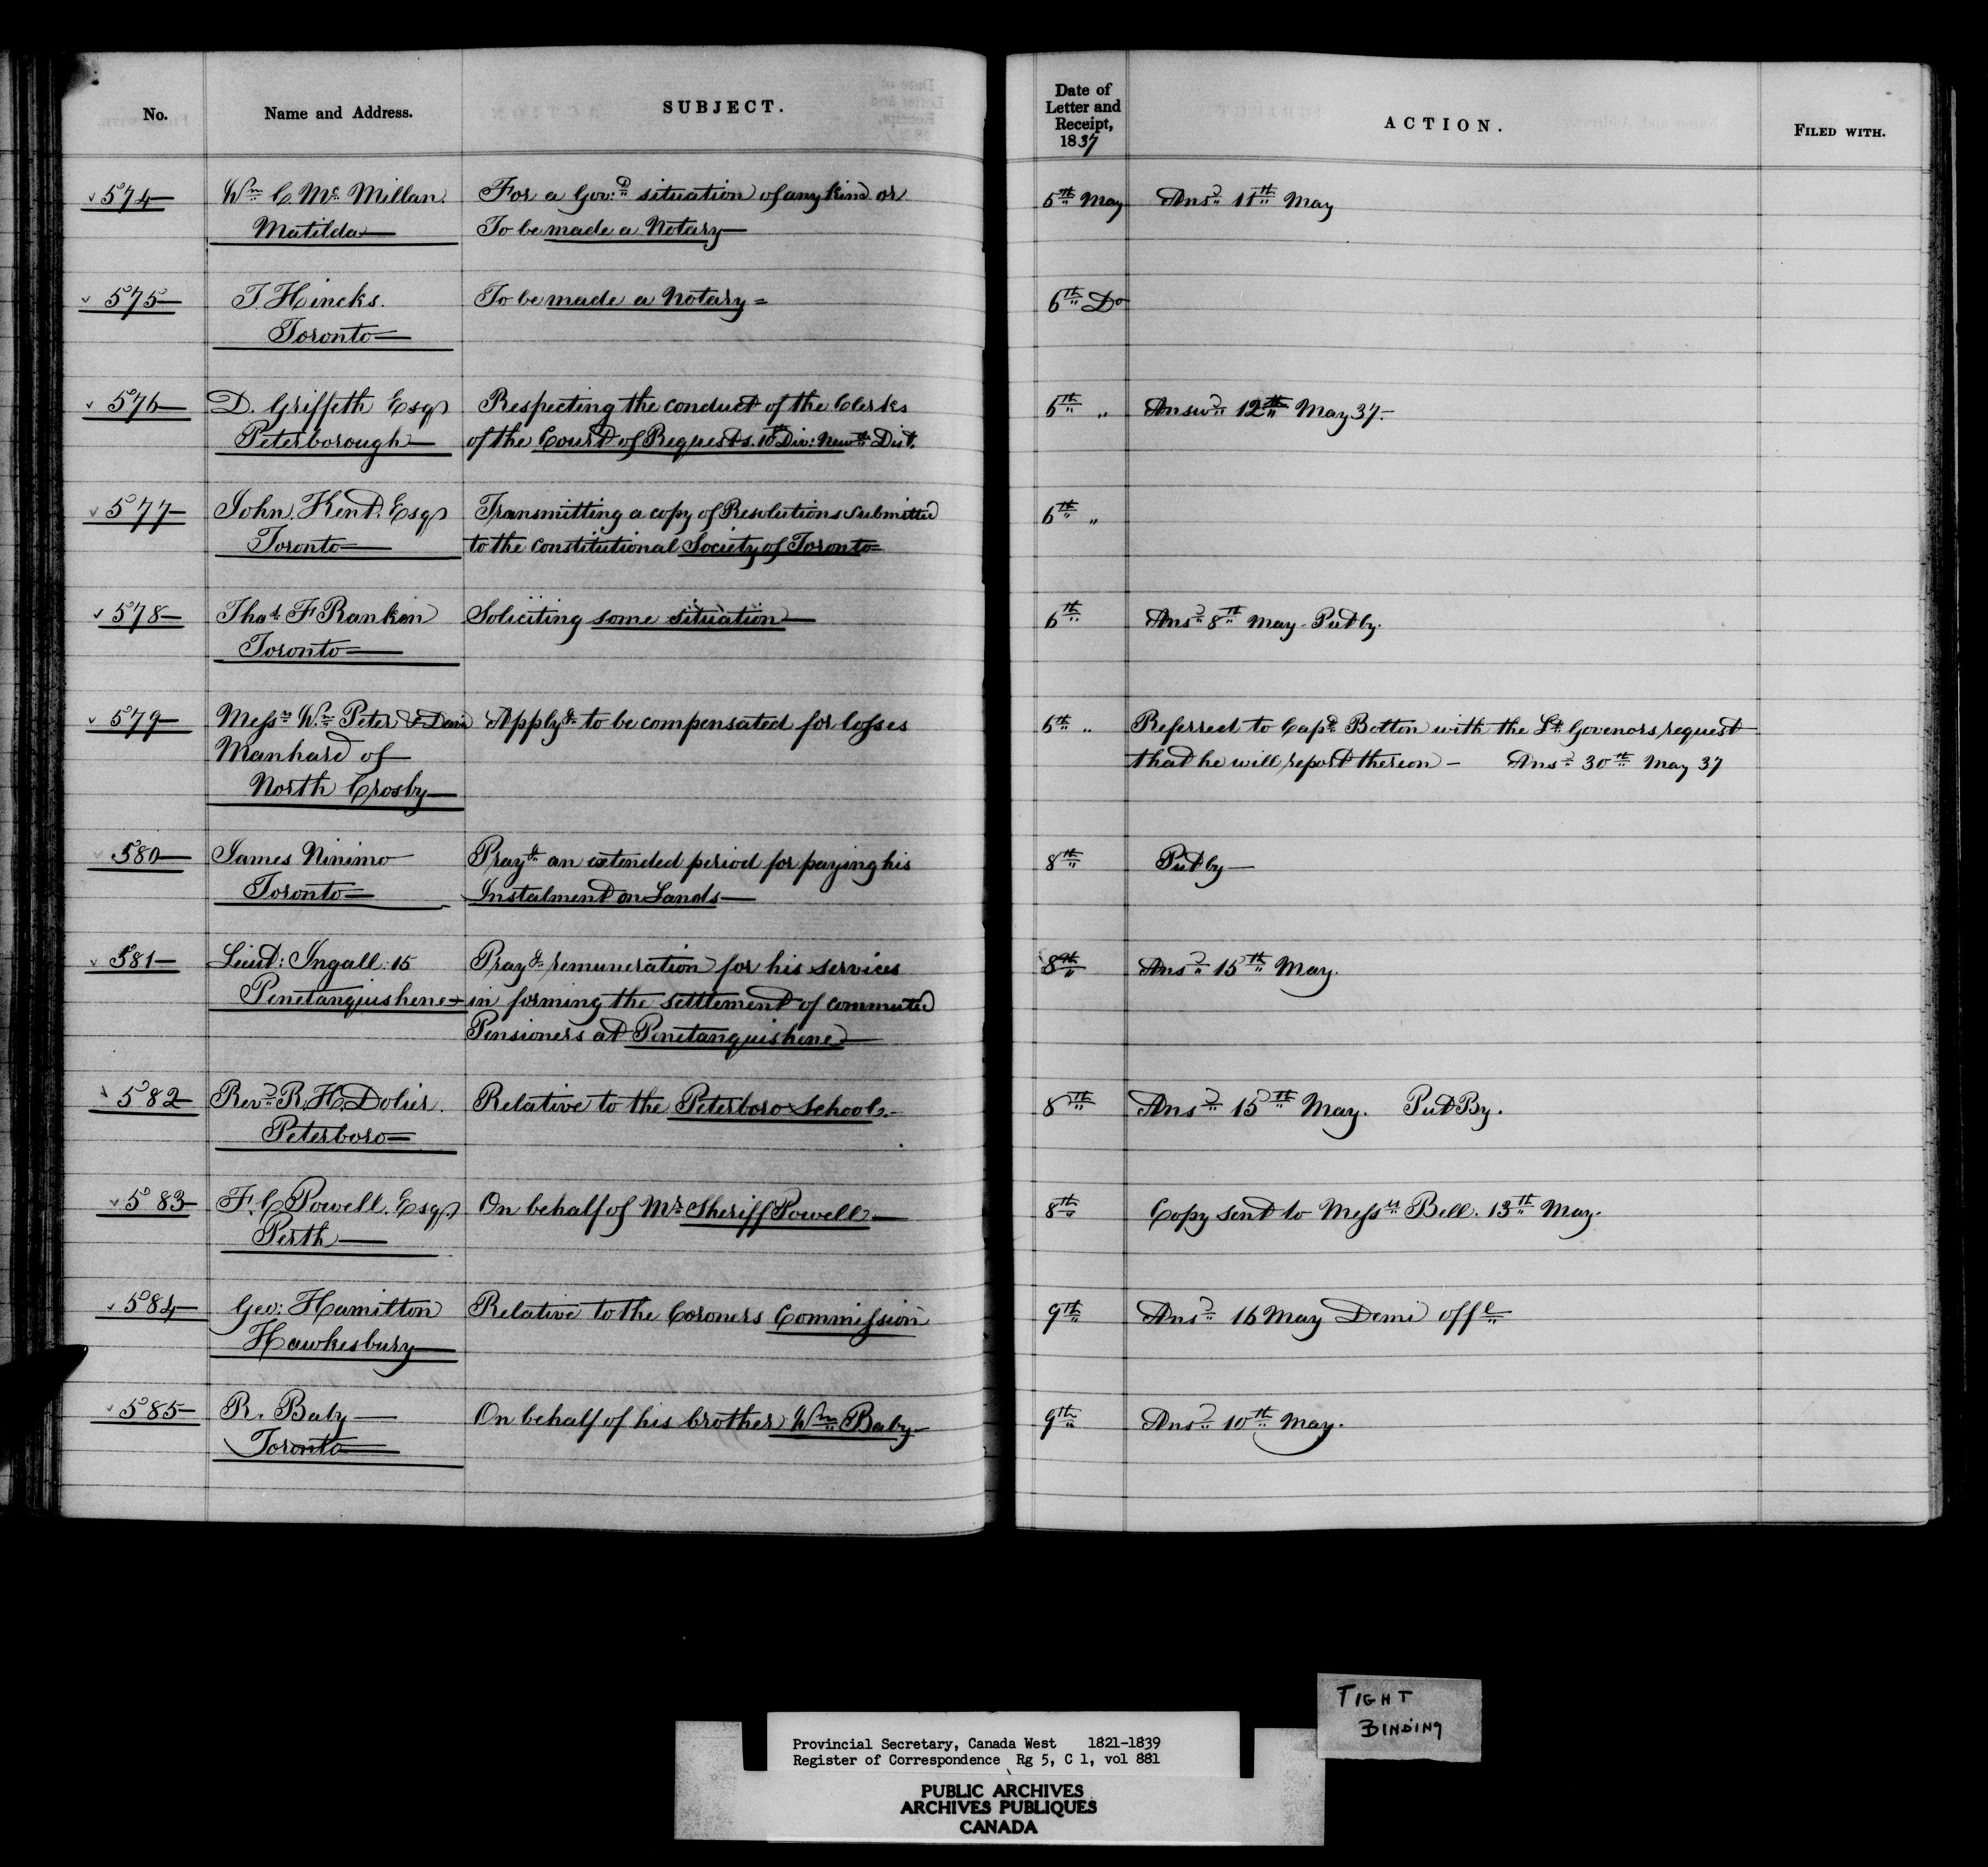 No. Name and Address. SUBJECT. Date of Letter and Receipt, 1837 ACTION. FILED WITH.
574 Wm C Mc Millan For a Gov:t situation of any kind or 5th May Ansd 11th May
Matilda To be made a Notary
575 T. Hincks. To be made a Notary = 6th Do
Toronto
576 D. Griffeth Esqr Respecting the conduct of the Clerks 6th " Answd 12th May 37.
Peterborough of the Court of Requests. 10th Div: Newle Dist.
577 John Kent. Esqr Transmitting a copy of Resolutions submitted 6th "
Toronto to the Constitutional Society of Toronto
578 Thos F Rankin Soliciting some situation 6th Ansd 8th May - Put by.
Toronto
579 Messrs Wm Peter & Applyg to be compensated for losses 6th " Referred to Capt Bolton with the Lt Govenors request
Manhard of that he will report thereon - Ansd 30th May 37
North Crosby
580 James Ninimo Prayg an extended period for paying his 8th Put by
Toronto Instalment on Lands
581 Lieut: Ingall: 15 Prayg remuneration for his services 8th Ansd 15th May.
Penetanguishene in forming the settlement of commuted
Pensioners at Penetanguishene
582 Revd R. H. Dolier. Relative to the Peterboro School. 8th Ansd 15th May. Put By.
Peterboro
583 F. C Powell. Esqr On behalf of Mr Sheriff Powell 8th Copy sent to Messrs Bell. 13th May.
Perth
584 Geo: Hamilton Relative to the Coroners Commission 9th Ansd 16 May Demi offl
Hawkesbury
585 R. Baby On behalf of his brother Wm Baby 9th Ansd 10th May.
Toronto
TIGHT
BINDING
Provincial Secretary, Canada West 1821-1839
Register of Correspondence Rg 5, C 1, vol 881
PUBLIC ARCHIVES
ARCHIVES PUBLIQUES
CANADA